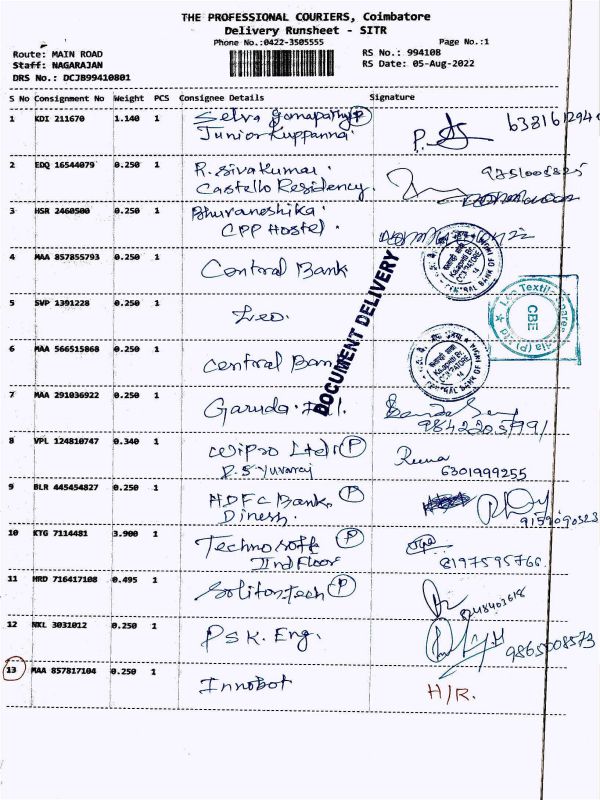 THE PROFESSIONAL COURIERS, Coimbatore
Delivery Runsheet - SITR
Phone No.:0422-3505555 Page No.:1
Route: MAIN ROAD RS No.: 994108
Staff: NAGARAJAN RS Date: 05-Aug-2022
DRS No.: DCJB99410801
S No Consignment No Weight PCS Consignee Details Signature
1 KDI 211670 1.140 1 Selva Ganapathy P
Junior Kuppanna
2 EDQ 16544079 0.250 1 R. Sivakumar.
Castello Residency.
3 HSR 2460500 0.250 1 Bhuraneshika.
CPP Hostel.
4 MAA 857855793 0.250 1 Central Bank
5 SVP 1391228 0.250 1 Leo.
CBE
6 MAA 566515868 0.250 1 Central Bank
DOCUMENT DELIVERY
7 MAA 291036922 0.250 1 Garuda.
8 VPL 124810747 0.340 1 Wipro Ltd P
D.S Yuvaraj
6301999255
9 BLR 445454827 0.250 1 HDFC Bank, P
Dinesh.
9159090323
10 KTG 7114481 3.900 1 Technosoft P
IInd Floor
8197595766
11 HRD 716417108 0.495 1 Solitontech P
12 NKL 3031012 0.250 1 PSK. Eng.
9865008573
13 MAA 857817104 0.250 1 Innobot H/R.